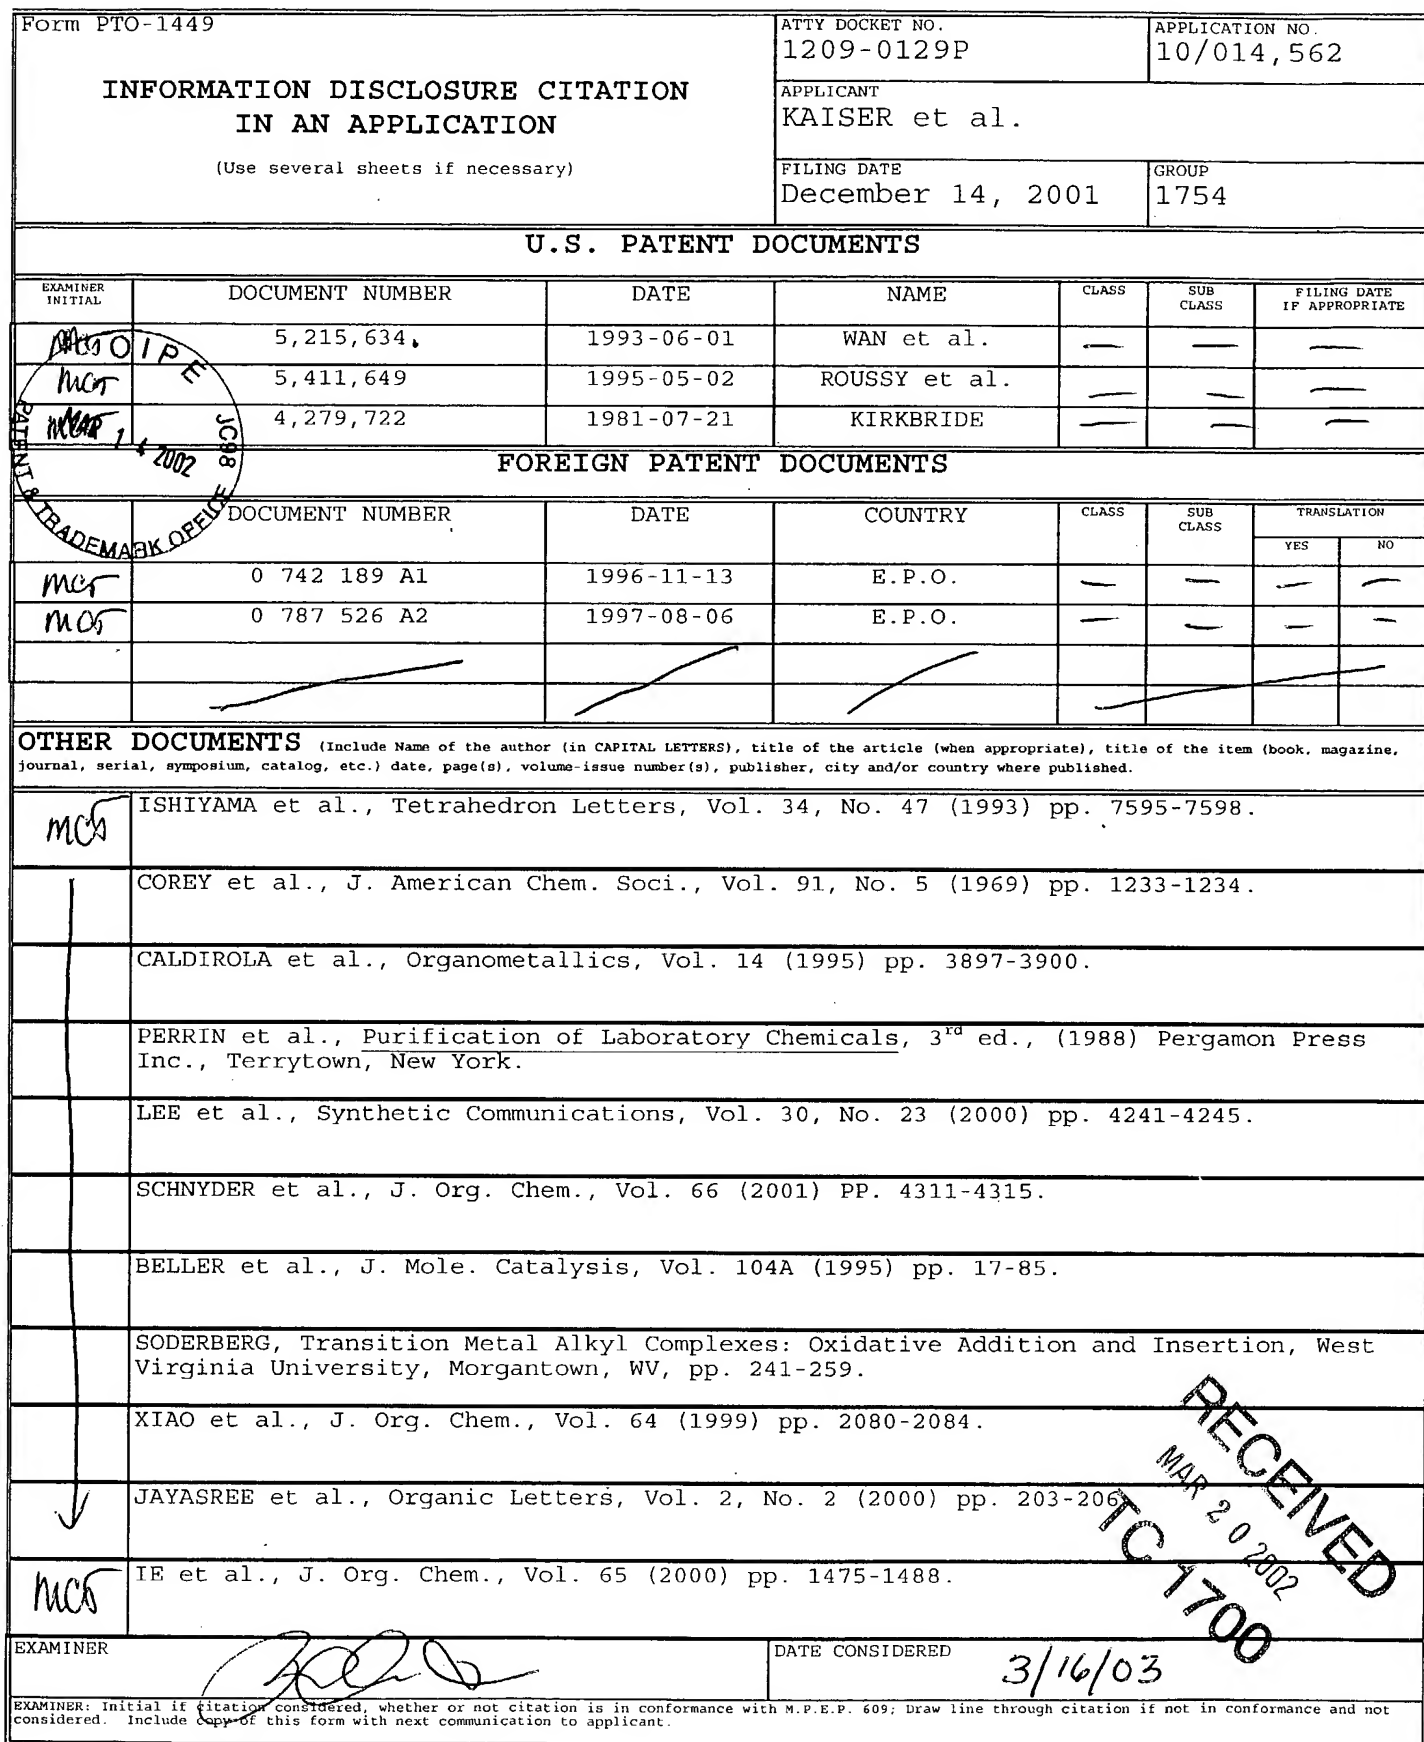 Form PTO-1449
INFORMATION DISCLOSURE CITATION
IN AN APPLICATION
(Use several sheets if necessary)
ATTY DOCKET NO.
1209-0129P
APPLICATION NO.
10/014,562
APPLICANT
KAISER et al.
FILING DATE
December 14, 2001
GROUP
1754
U.S. PATENT DOCUMENTS
EXAMINER INITIAL DOCUMENT NUMBER DATE NAME CLASS SUB CLASS FILING DATE IF APPROPRIATE
5,215,634 1993-06-01 WAN et al. — — —
5,411,649 1995-05-02 ROUSSY et al. — — —
4,279,722 1981-07-21 KIRKBRIDE — — —
OIPE JC98
MAR 14 2002
PATENT & TRADEMARK OFFICE
FOREIGN PATENT DOCUMENTS
DOCUMENT NUMBER DATE COUNTRY CLASS SUB CLASS TRANSLATION
YES NO
0 742 189 A1 1996-11-13 E.P.O. — — — —
0 787 526 A2 1997-08-06 E.P.O. — — — —
OTHER DOCUMENTS (Include Name of the author (in CAPITAL LETTERS), title of the article (when appropriate), title of the item (book, magazine,
journal, serial, symposium, catalog, etc.) date, page(s), volume-issue number(s), publisher, city and/or country where published.
ISHIYAMA et al., Tetrahedron Letters, Vol. 34, No. 47 (1993) pp. 7595-7598.
COREY et al., J. American Chem. Soci., Vol. 91, No. 5 (1969) pp. 1233-1234.
CALDIROLA et al., Organometallics, Vol. 14 (1995) pp. 3897-3900.
PERRIN et al., Purification of Laboratory Chemicals, 3rd ed., (1988) Pergamon Press
Inc., Terrytown, New York.
LEE et al., Synthetic Communications, Vol. 30, No. 23 (2000) pp. 4241-4245.
SCHNYDER et al., J. Org. Chem., Vol. 66 (2001) PP. 4311-4315.
BELLER et al., J. Mole. Catalysis, Vol. 104A (1995) pp. 17-85.
SODERBERG, Transition Metal Alkyl Complexes: Oxidative Addition and Insertion, West
Virginia University, Morgantown, WV, pp. 241-259.
XIAO et al., J. Org. Chem., Vol. 64 (1999) pp. 2080-2084.
JAYASREE et al., Organic Letters, Vol. 2, No. 2 (2000) pp. 203-206
IE et al., J. Org. Chem., Vol. 65 (2000) pp. 1475-1488.
RECEIVED
MAR 20 2002
TC 1700
EXAMINER
DATE CONSIDERED
3/16/03
EXAMINER: Initial if citation considered, whether or not citation is in conformance with M.P.E.P. 609; Draw line through citation if not in conformance and not
considered. Include copy of this form with next communication to applicant.